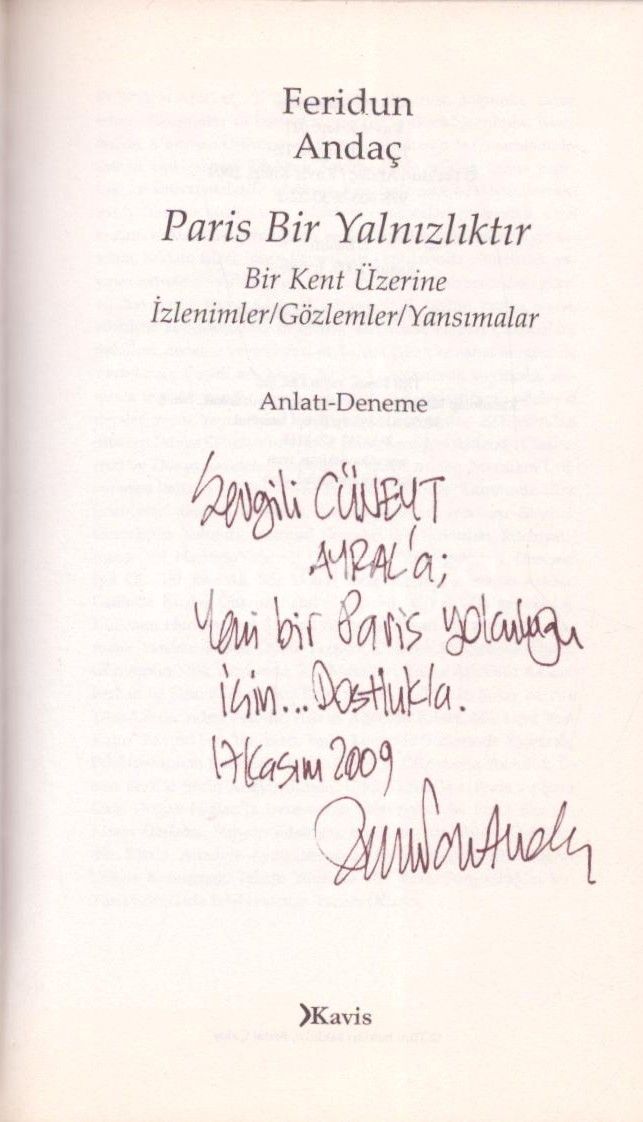 Feridun
Andaç
Paris Bir Yalnızlıktır
Bir Kent Üzerine
İzlenimler/Gözlemler/Yansımalar
Anlatı-Deneme
Sevgili CÜNEYT
AYRAL'a;
Yeni bir Paris yolculuğu
için... Dostlukla.
17 Kasım 2009
Kavis